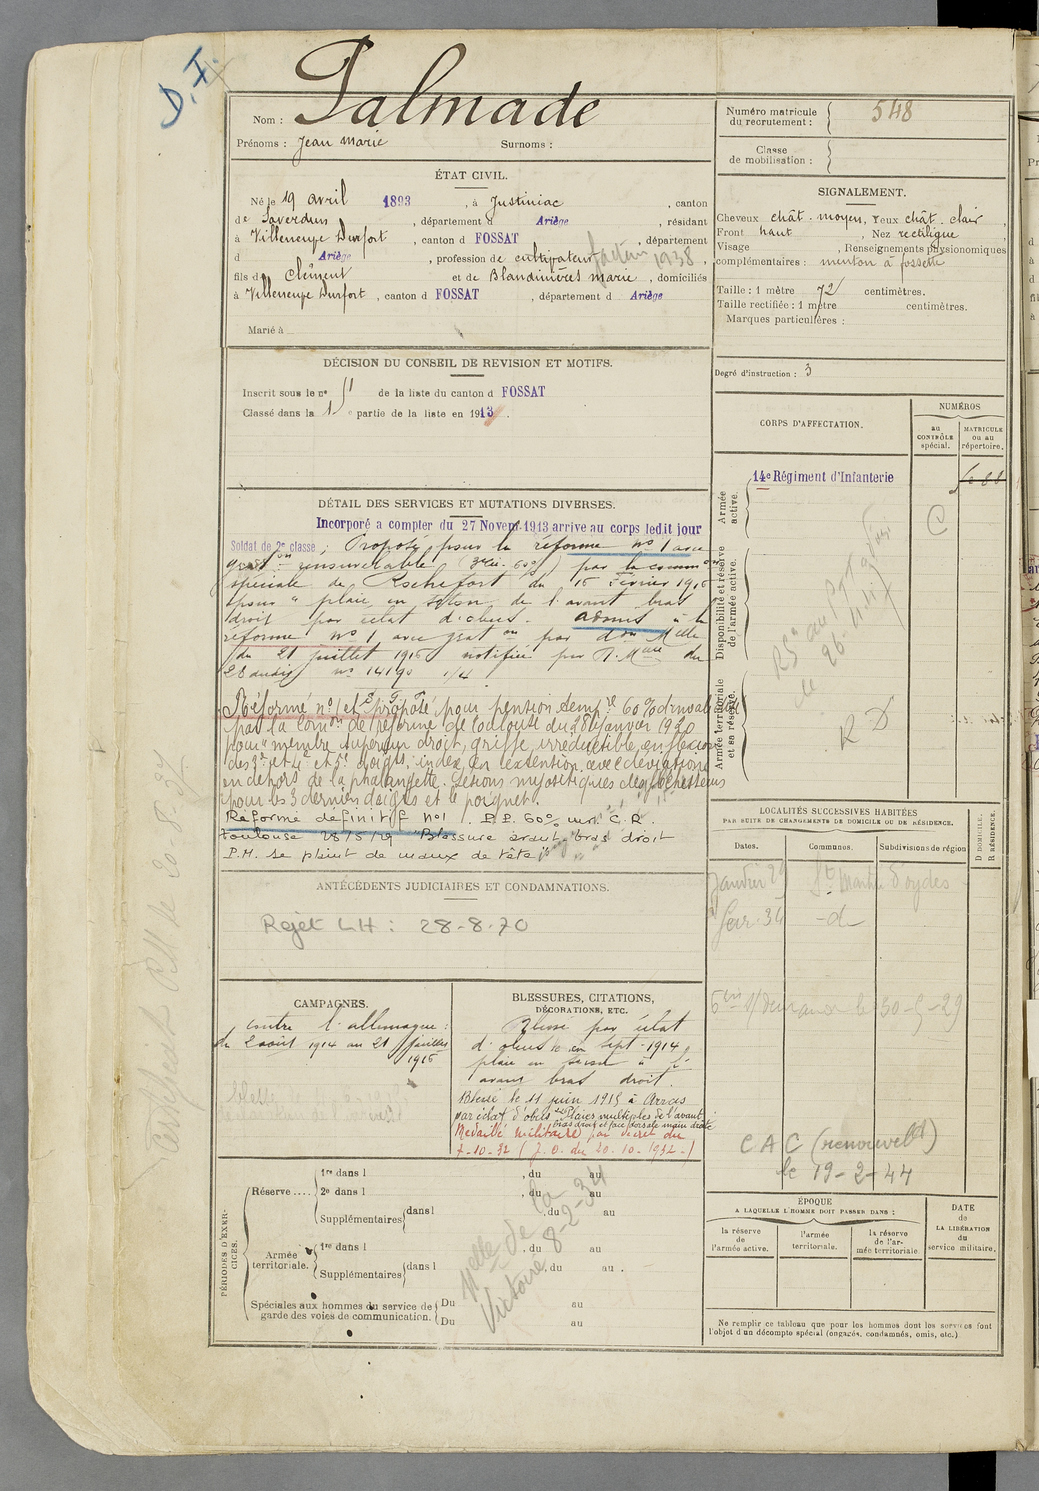 D.F.
Nom : Palmade
Prénoms : Jean Marie Surnoms :
ÉTAT CIVIL.
Né le 19 avril 1893, à Justiniac, canton
de Saverdun, département d Ariège, résidant
à Villeneuve Durfort, canton d FOSSAT, département
d Ariège, profession de cultivateur facteur 1938,
fils de Clément et de Blandinières Marie, domiciliés
à Villeneuve Durfort, canton d FOSSAT, département d Ariège
Marié à
DÉCISION DU CONSEIL DE REVISION ET MOTIFS.
Inscrit sous le no 51 de la liste du canton d FOSSAT
Classé dans la 1e partie de la liste en 1913.
DÉTAIL DES SERVICES ET MUTATIONS DIVERSES.
Incorporé a compter du 27 Novem. 1913 arrive au corps ledit jour
Soldat de 2e classe ; Proposé pour la réforme no 1 avec
grat on renouvelable par la comm on
spéciale de Rochefort du 15 Février 1916
pour " plaie en séton de l'avant bras
droit par éclat d'obus. admis à la
réforme no 1 avec grat on par d on Melle
du 21 juillet 1916 notifiée par du
28 audit no 14190 1/4
Réformé no 1 et proposé pour pension 60 %
par la Com on de réforme de Toulouse du 28 janvier 1920
pour " membre supérieur droit, griffe irréductible en flexion
des 3e et 4e et 5e doigts, index en extention avec déviation
en dehors de la phalangette. Lésions myositiques des fléchisseurs
pour les 3 derniers doigts et le poignet.
Réforme definitif no 1 . P.P. 60% C.R.
Toulouse 28/5/29 "Blessure avant bras droit
P.M. se plaint de maux de tête"
ANTÉCÉDENTS JUDICIAIRES ET CONDAMNATIONS.
Rejet LH : 28-8-70
CAMPAGNES.
Contre l'allemagne :
du 2 août 1914 au 21 juillet
1916
BLESSURES, CITATIONS,
DÉCORATIONS, ETC.
Blessé par éclat
d'obus le en sept-1914
plaie en
avant bras droit.
Blessé le 11 juin 1915 à Arras
par éclat d'obus "Plaies multiples de l'avant
bras droit et face dorsale main droite
Médaille militaire par décret du
7-10-32 (J.O. du 20-10-1932-)
PÉRIODES D'EXERCICES.
Réserve.... 1re dans l , du au
2e dans l , du au
Supplémentaires dans l , du au
Armée territoriale. 1re dans l , du au
Supplémentaires dans l , du au .
Spéciales aux hommes du service de garde des voies de communication. Du au
Du au
Melle de la
Victoire 8-2-34
Numéro matricule du recrutement : 548
Classe de mobilisation :
SIGNALEMENT.
Cheveux chât. moyen, Yeux chât. clair
Front haut, Nez rectiligne
Visage , Renseignements physionomiques
complémentaires : menton à fossette
Taille : 1 mètre 72 centimètres.
Taille rectifiée : 1 mètre centimètres.
Marques particulières :
Degré d'instruction : 3
CORPS D'AFFECTATION.
NUMÉROS
au CONTRÔLE spécial.
MATRICULE ou au répertoire.
Armée active.
14e Régiment d'Infanterie
C
Disponibilité et réserve de l'armée active.
Armée territoriale et sa réserve.
RD
LOCALITÉS SUCCESSIVES HABITÉES
PAR SUITE DE CHANGEMENTS DE DOMICILE OU DE RÉSIDENCE.
D DOMICILE. R RÉSIDENCE.
Dates. Communes. Subdivisions de région
Janvier 29 St Martin d'Oydes
Fevr. 34 -d-
CAC (renouvelé)
le 19-2-44
ÉPOQUE
A LAQUELLE L'HOMME DOIT PASSER DANS :
la réserve de l'armée active.
l'armée territoriale.
la réserve de l'armée territoriale
DATE de LA LIBÉRATION du service militaire.
Ne remplir ce tableau que pour les hommes dont les services font
l'objet d'un décompte spécial (engagés, condamnés, omis, etc.)